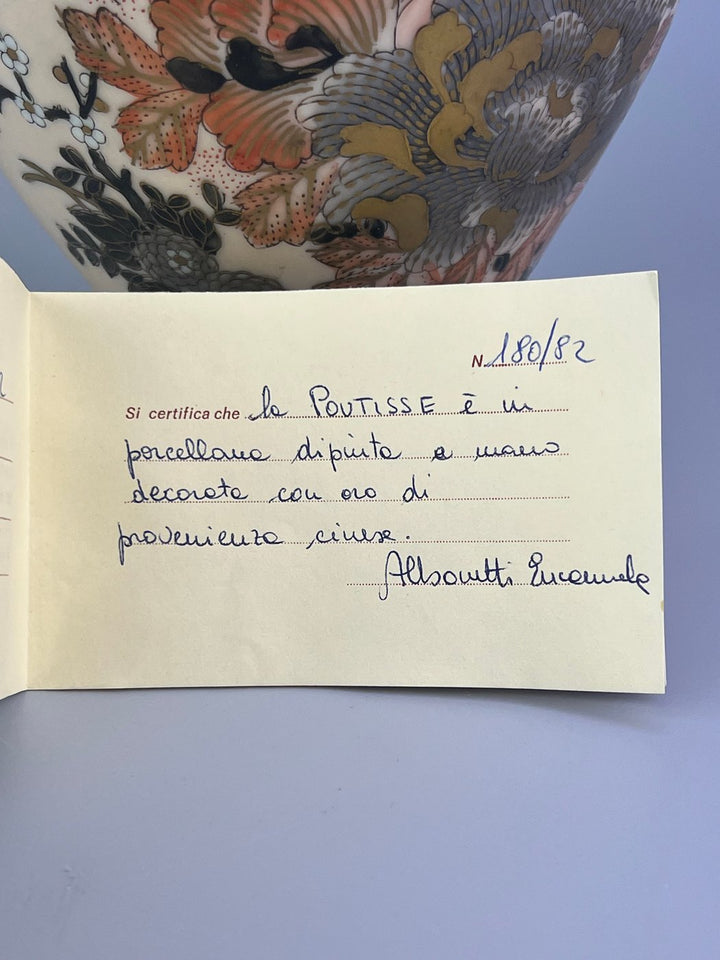 N. 180/82
Si certifica che la POUTISSE è in
porcellana dipinta a mano
decorata con oro di
provenienza cinese.
Emanuela